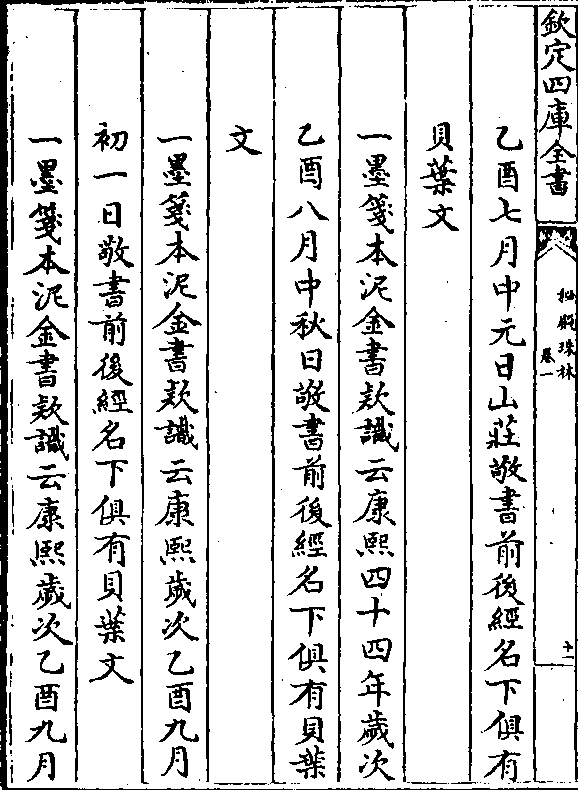 欽定四庫全書
秘殿珠林
卷一
十一
乙酉七月中元日山莊敬書前後經名下俱有
貝葉文
一墨箋本泥金書款識云康熙四十四年歲次
乙酉八月中秋日敬書前後經名下俱有貝葉
文
一墨箋本泥金書款識云康熙歲次乙酉九月
初一日敬書前後經名下俱有貝葉文
一墨箋本泥金書款識云康熙歲次乙酉九月